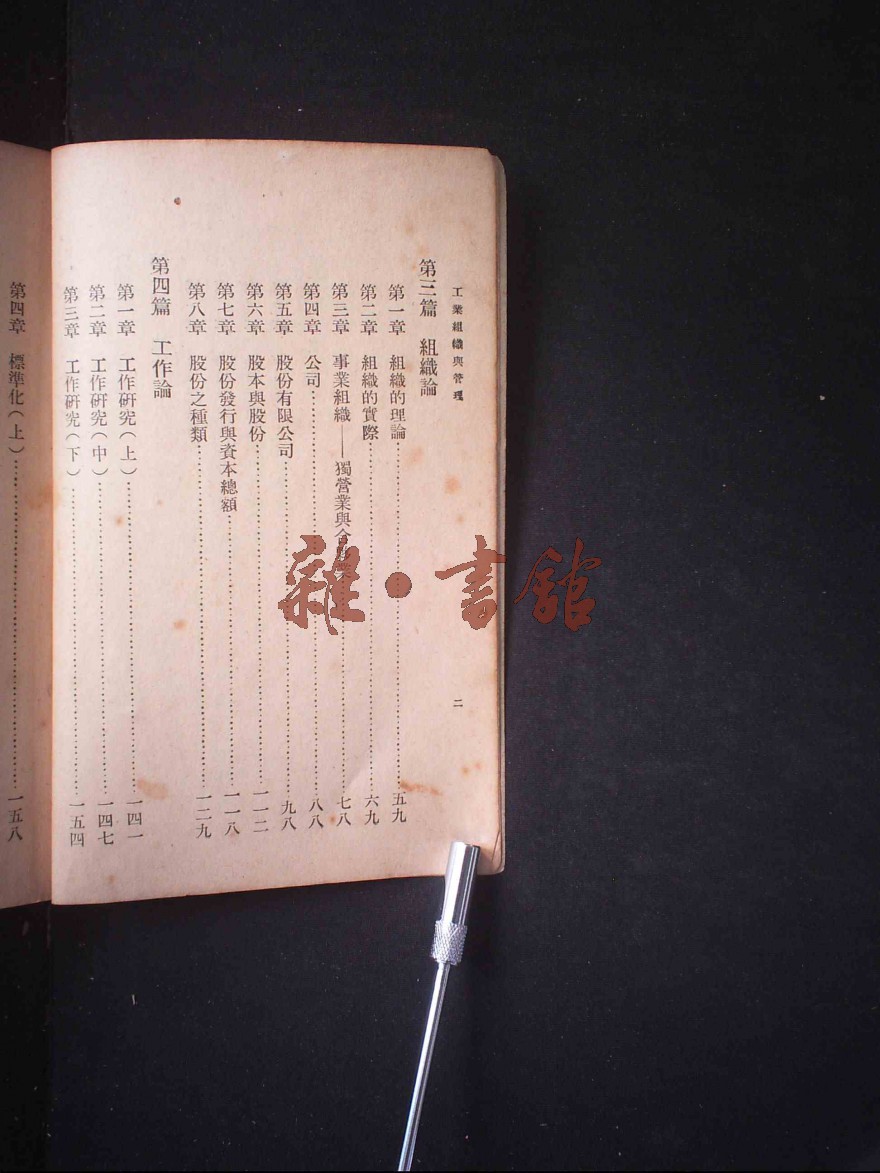 工業組織與管理
二
第三篇　組織論
第一章　組織的理論……五九
第二章　組織的實際……六九
第三章　事業組織——獨營業與……七八
第四章　公司……八八
第五章　股份有限公司……九八
第六章　股本與股份……一一二
第七章　股份發行與資本總額……一一八
第八章　股份之種類……一二九
第四篇　工作論
第一章　工作研究（上）……一四一
第二章　工作研究（中）……一四七
第三章　工作研究（下）……一五四
第四章　標準化（上）……一五八
雜·書館